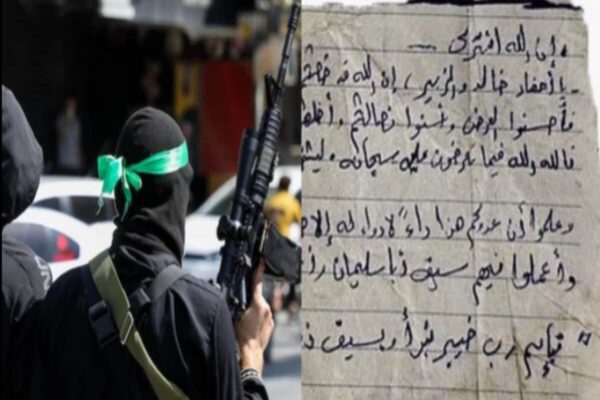 إن الله اشترى
يا أحفاد خالد والزبير، إن الله قد
فأحسنوا العرض وأسنوا نصالكم
فالله الله فيما تعرضون عليه سبحانه
وعلموا أن عدوكم هذا داءً لا دواء له إلا
وأعملوا فيهم سيف أبا سليمان
" فباسم رب خيبر نبدأ وبسيف